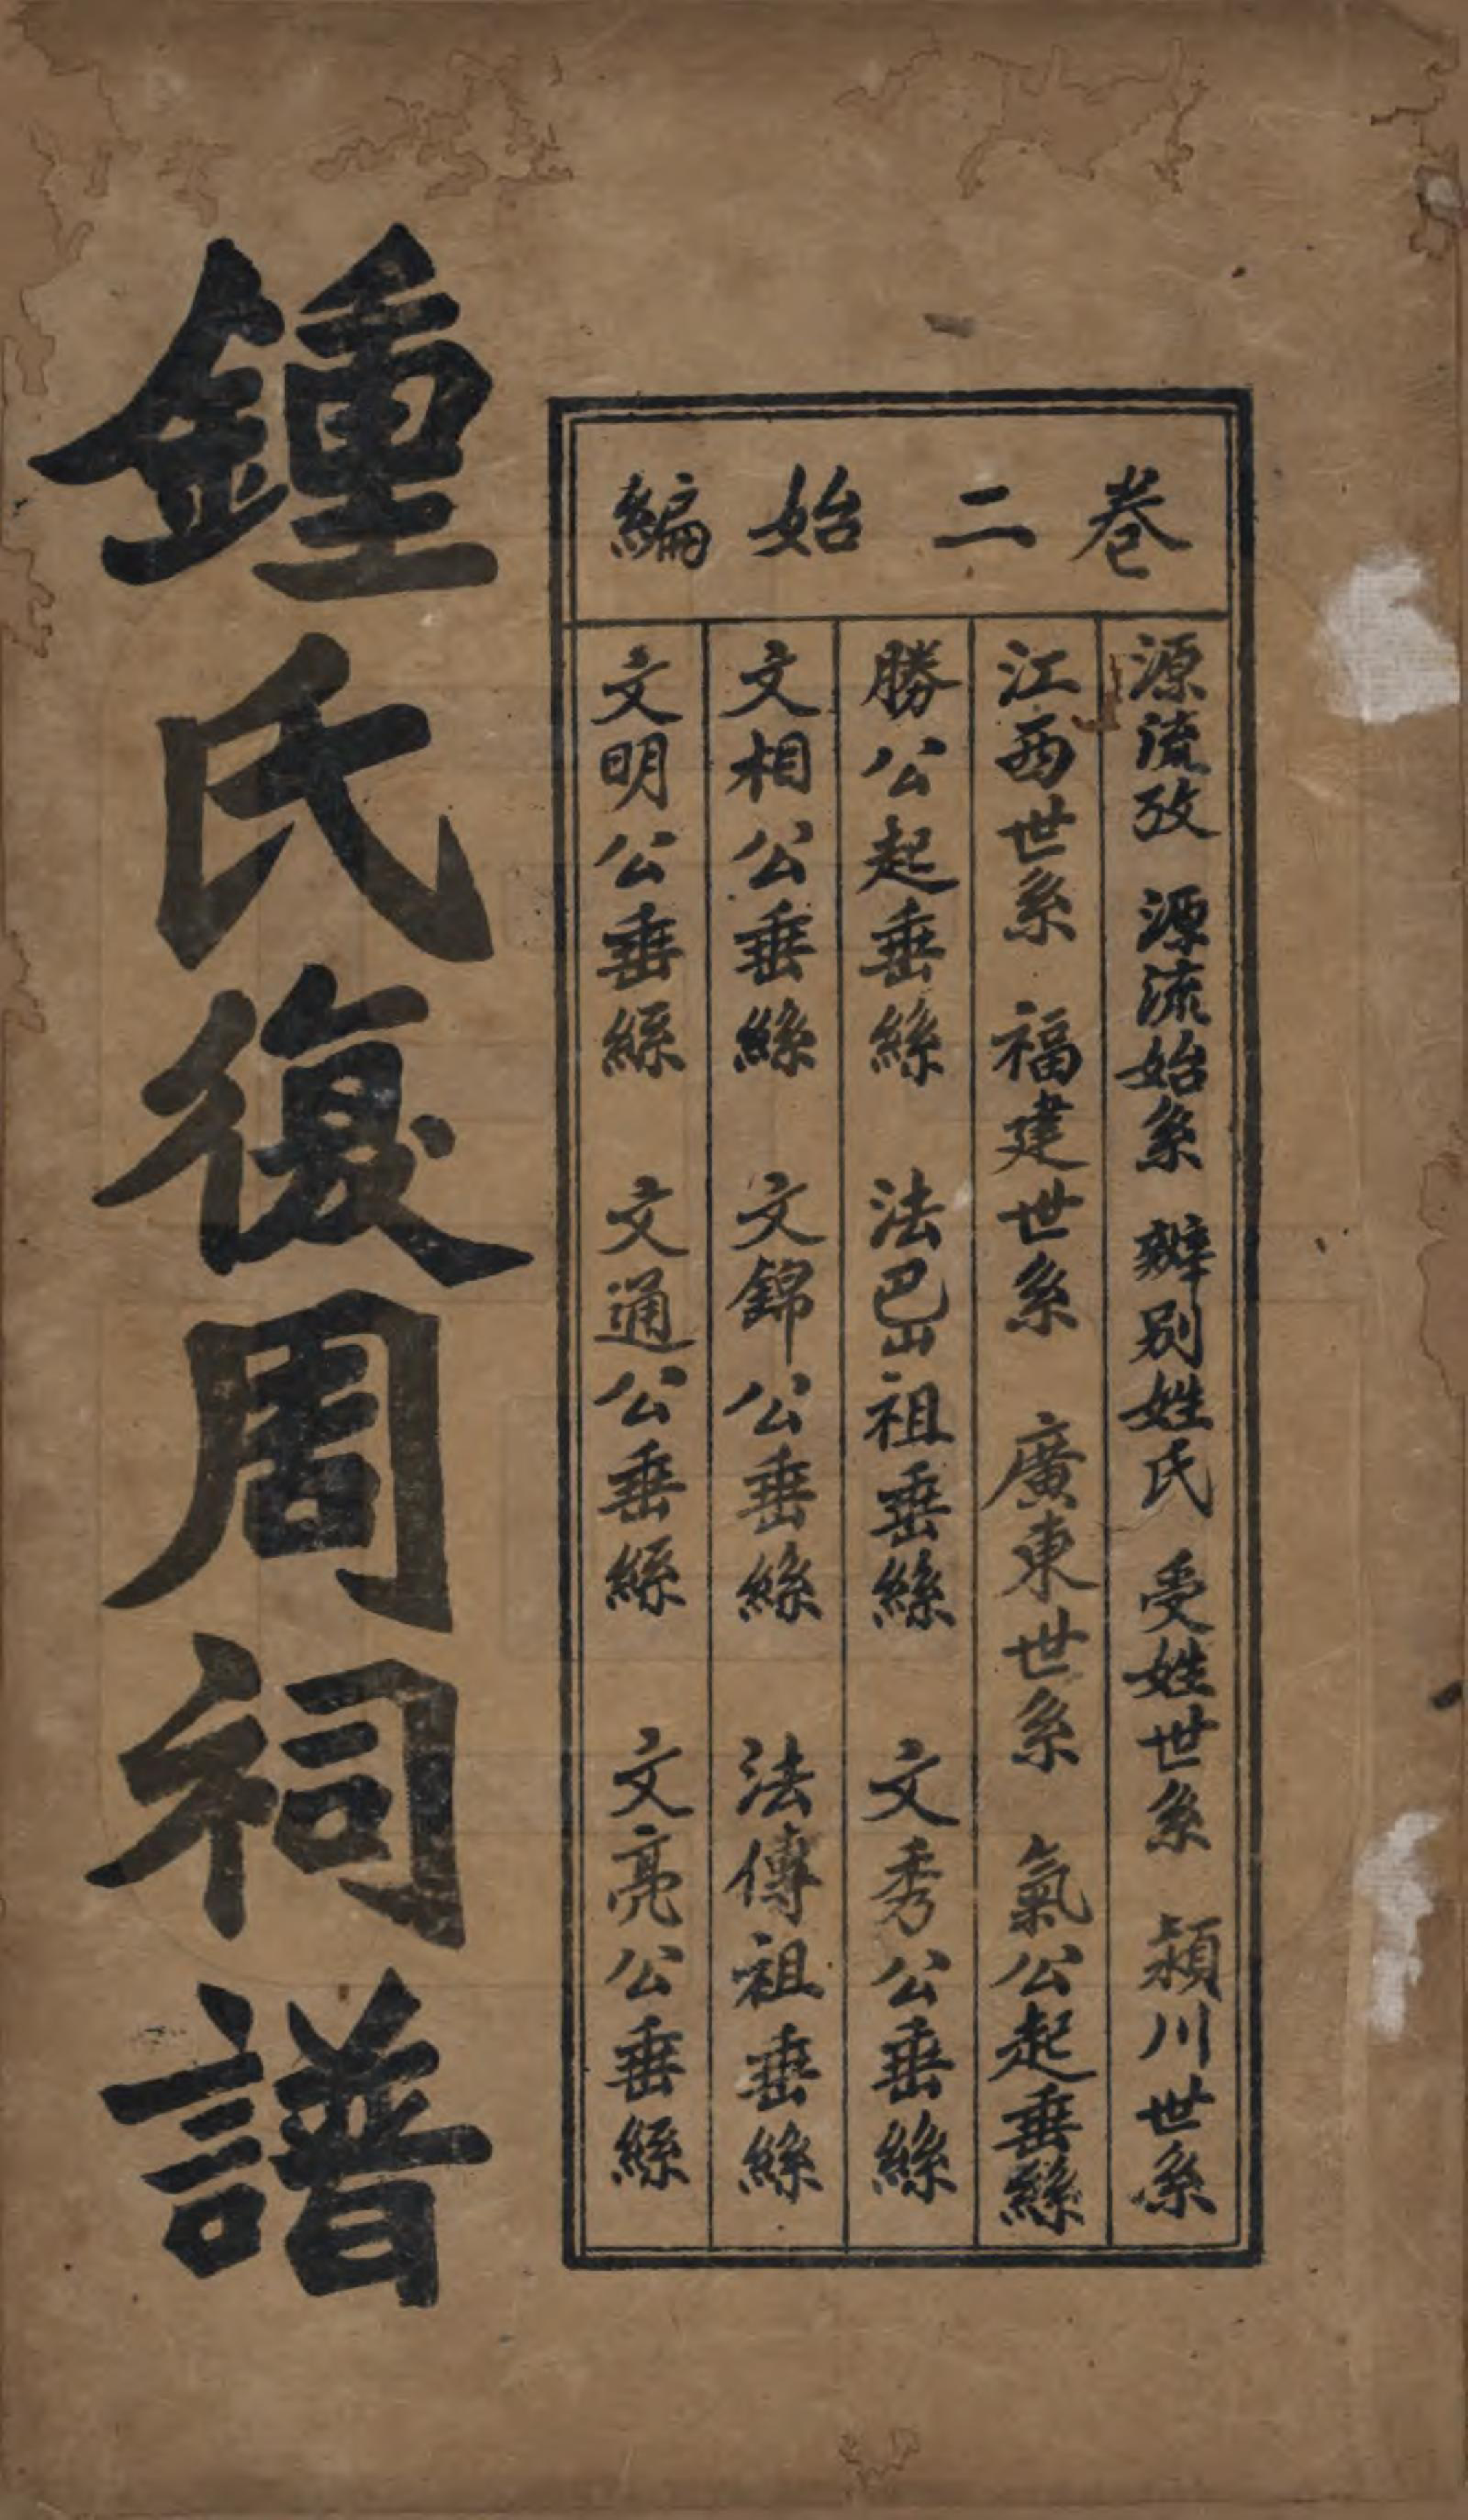 卷二始編
源流攷 源流始系 辦別姓氏 受姓世系 潁川世系
江西世系 福建世系 廣東世系 氣公起垂絲
勝公起垂絲 法巴山祖垂絲 文秀公垂絲
文相公垂絲 文錦公垂絲 法傳祖垂絲
文明公垂絲 文通公垂絲 文亮公垂絲
鍾氏復周祠譜